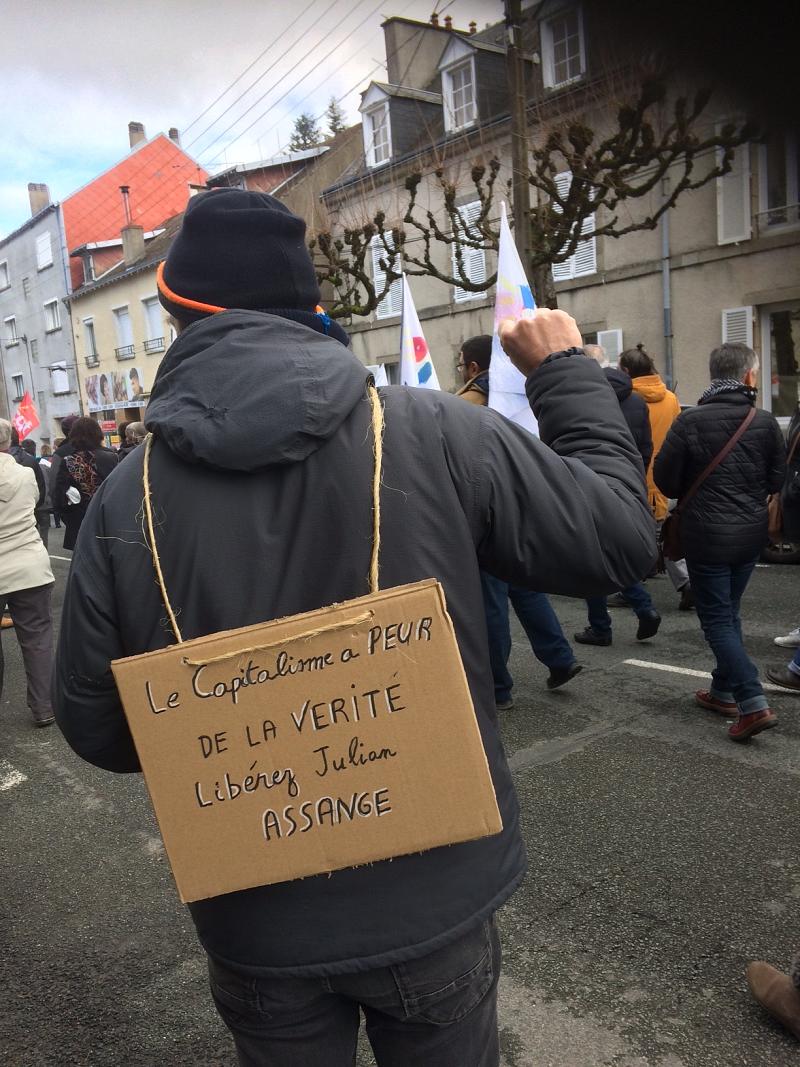 Le Capitalisme a PEUR
DE LA VERITÉ
Libérez Julian
ASSANGE